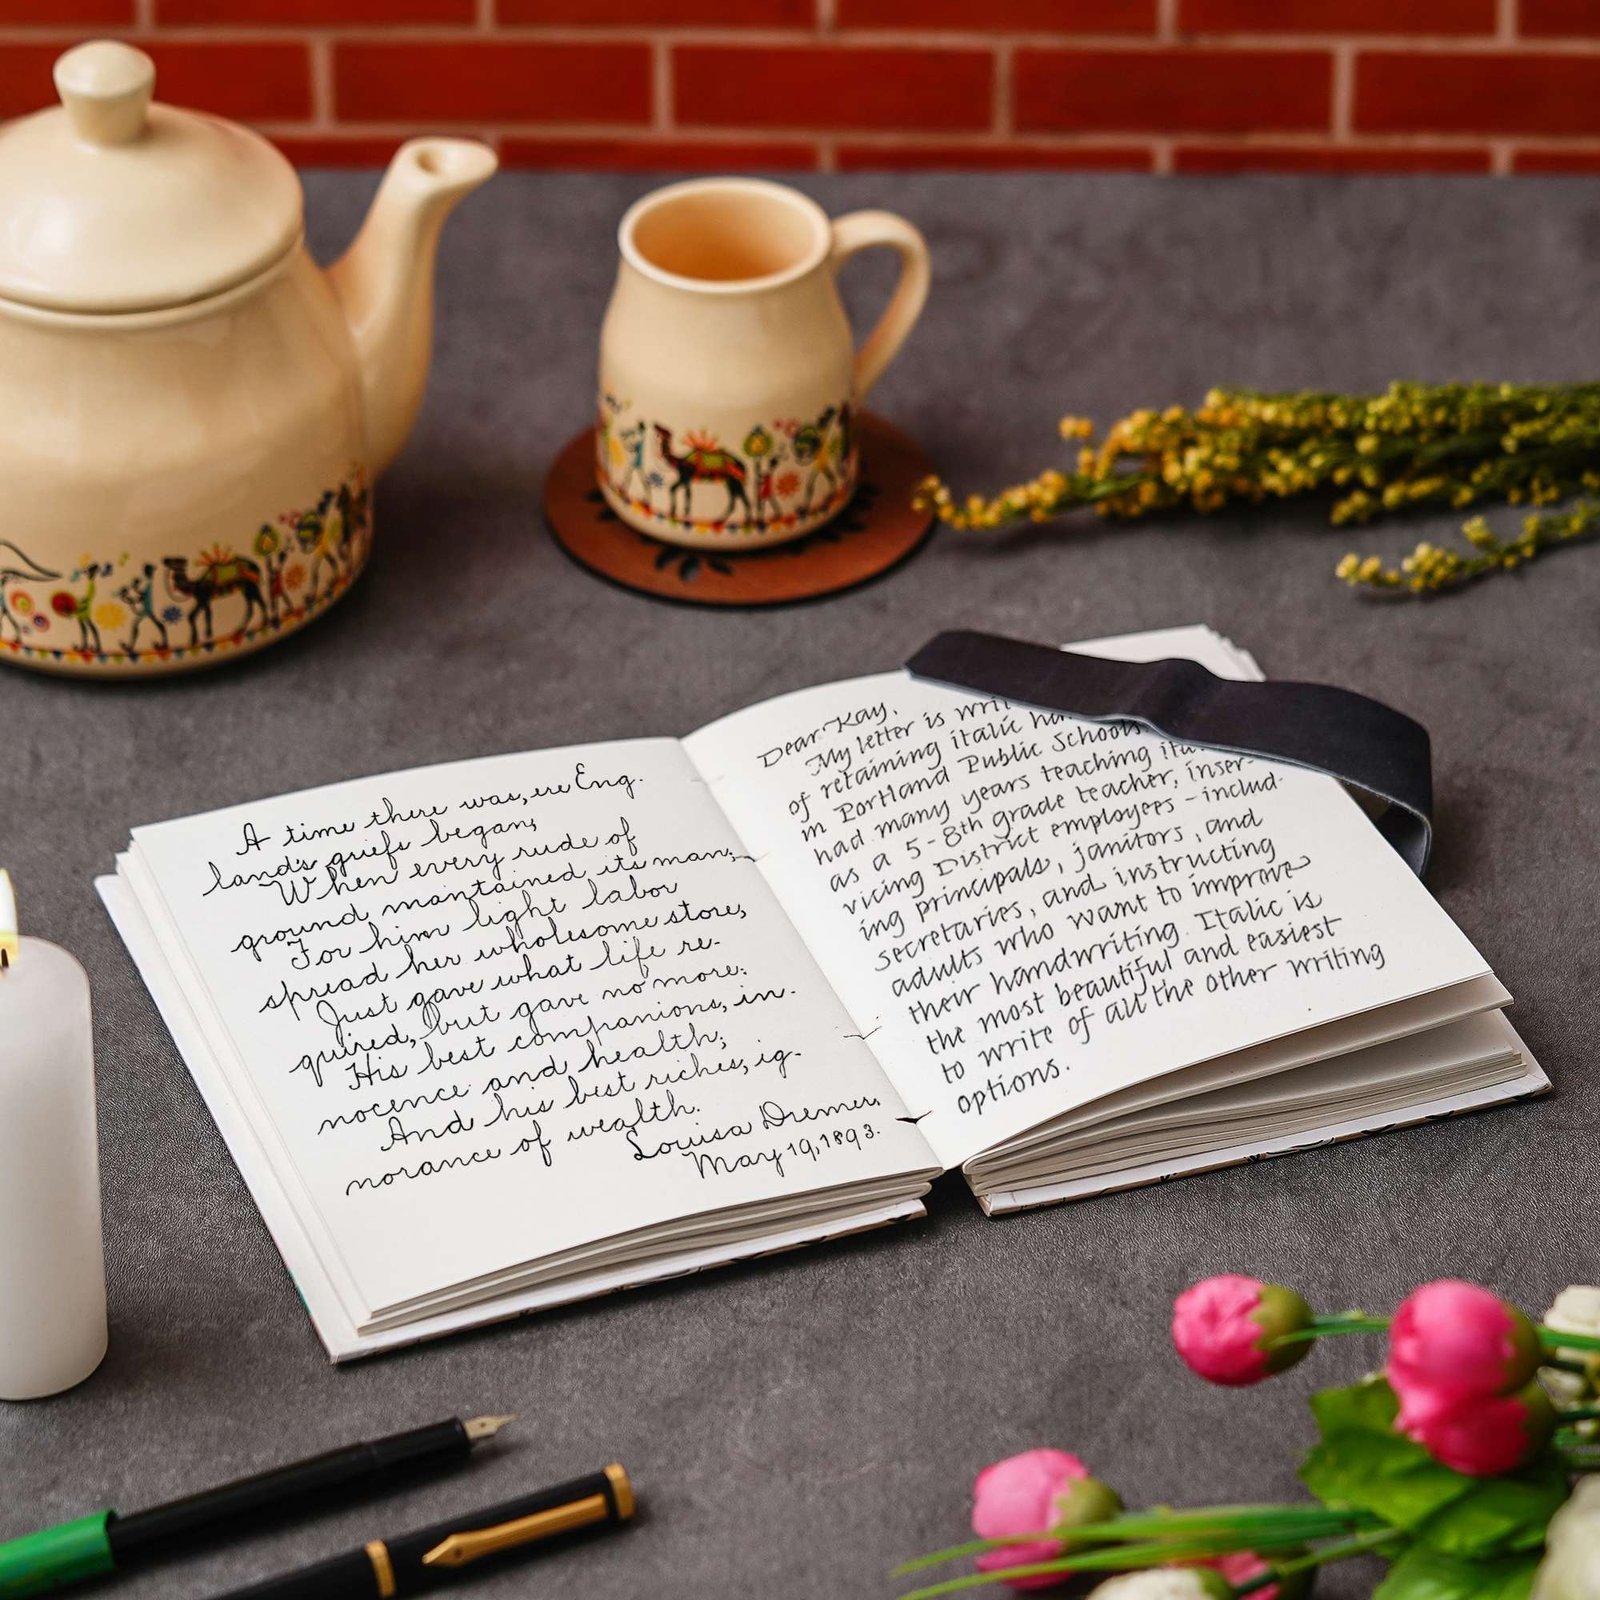 A time there was, ere Eng-
land's griefs began,
When every rude of
ground maintained its man;
For him light labor
spread her wholesome store,
Just gave what life re-
quired, but gave no more:
His best companions, in-
nocence and health;
And his best riches, ig-
norance of wealth.
Louisa
May 19, 1893.
Dear Kay,
My letter is
of retaining italic
in Portland Public Schools
had many years teaching
as a 5-8th grade teacher, inser-
vicing District employees - includ-
ing principals, janitors, and
secretaries, and instructing
adults who want to improve
their handwriting. Italic is
the most beautiful and easiest
to write of all the other writing
options.